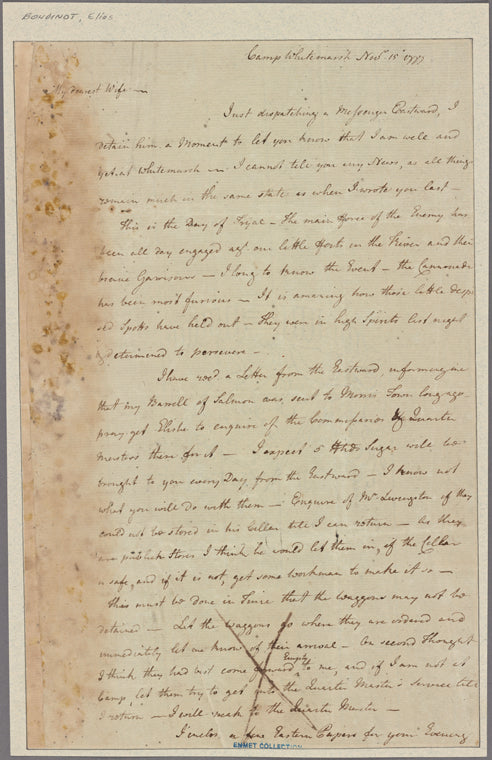 BOUDINOT, Elias
Camp Whitemarsh Novr. 15th 1777
My dearest Wife —
Just dispatching a Messenger Eastward, I
detain him a Moment to let you know that I am well and
yet at Whitemarsh — I cannot tell you any News, as all things
remain much in the same state as when I wrote you last —
This is the Day of Tryal — The main Force of the Enemy has
been all day engaged agt. our little Forts in the River and their
brave Garrisons — I long to know the Event — the Cannonade
has been most furious — It is amazing how those little despi
sed Spotts have held out — They were in high Spirits last night
& determined to persevere —
I have recd. a Letter from the Eastward informing me
that my Barrell of Salmon was sent to Morris Town long ago
pray get Elisha to enquire of the Commissaries & Quarter
Masters there for it — I expect 5 Hhds Sugar will be
brought to you every Day from the Eastward — I know not
what you will do with them — Enquire of Mr. Livingston if they
could not be stored in his Cellar till I can return — As they
are publick Stores I think he would let them in, if the Cellar
is safe, and if it is not, get some workman to make it so —
This must be done in Time that the Waggons may not be
detained — Let the waggons go where they are ordered and
immediately let me know of their arrival — On second Thought
I think they had best come forward Empty to me, and if I am not at
Camp, let them try to get into the Quarter Master's Service till
I return — I will speak to the Quarter Master —
I inclose a few Eastern Papers for your Evening
EMMET COLLECTION